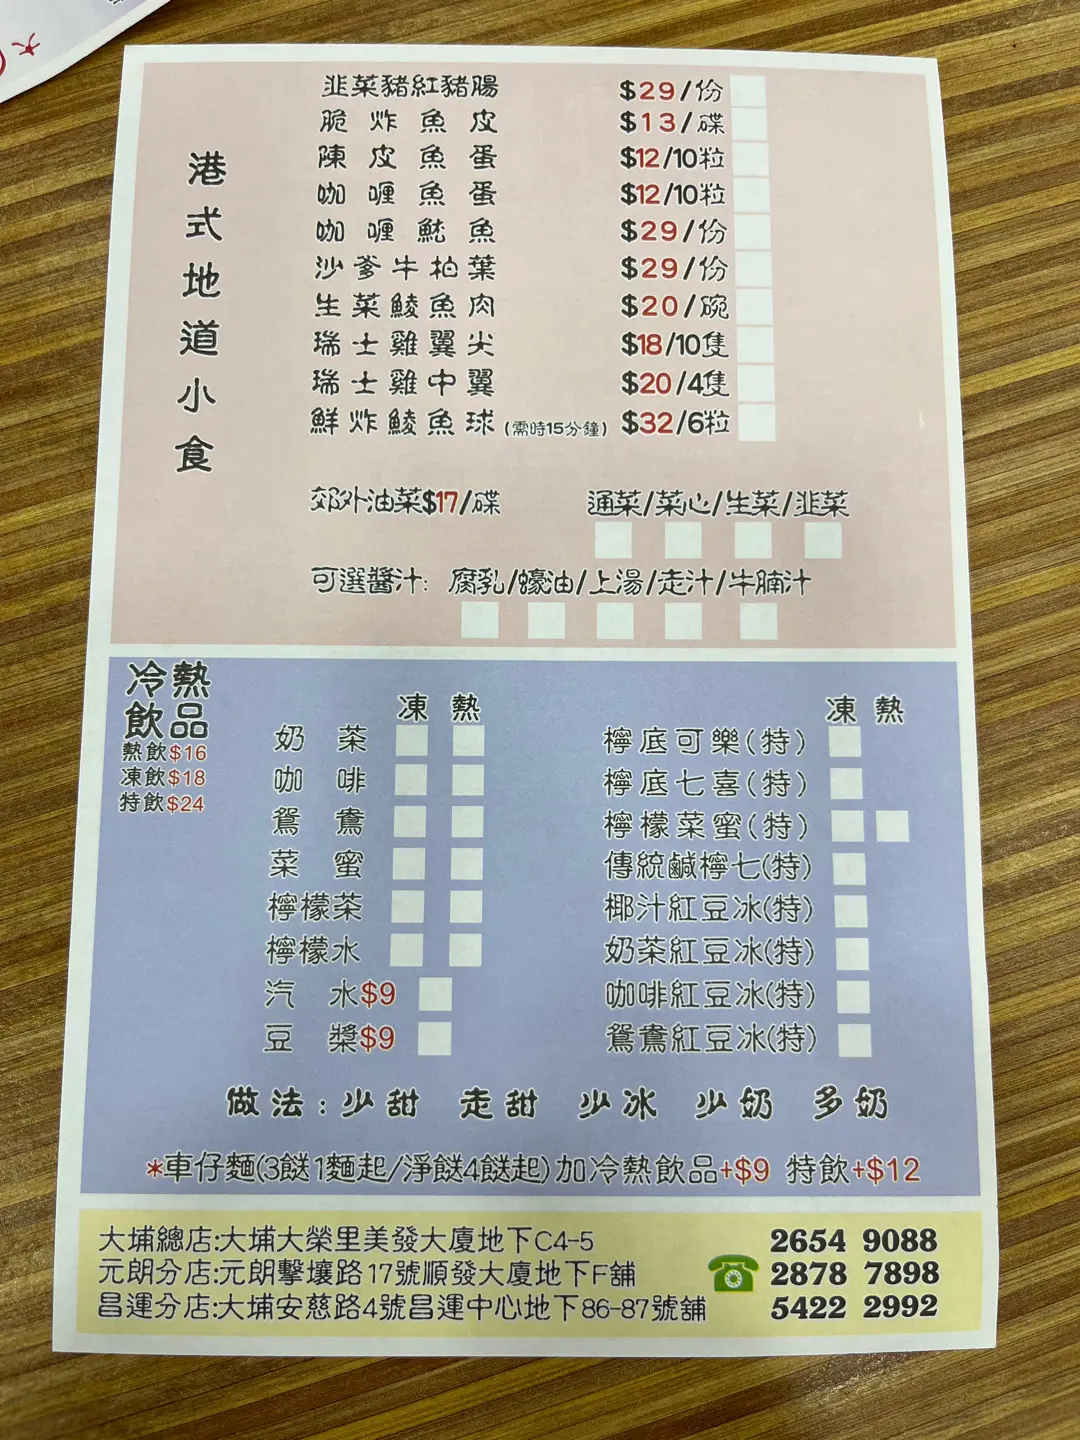 港式地道小食
韮菜豬紅豬腸 $29/份
脆炸魚皮 $13/碟
陳皮魚蛋 $12/10粒
咖喱魚蛋 $12/10粒
咖喱魷魚 $29/份
沙爹牛柏葉 $29/份
生菜鯪魚肉 $20/碗
瑞士雞翼尖 $18/10隻
瑞士雞中翼 $20/4隻
鮮炸鯪魚球(需時15分鐘) $32/6粒
郊外油菜$17/碟 通菜/菜心/生菜/韮菜
可選醬汁: 腐乳/蠔油/上湯/走汁/牛腩汁
冷熱
飲品
熱飲$16
凍飲$18
特飲$24
凍 熱
奶茶
咖啡
鴛鴦
菜蜜
檸檬茶
檸檬水
汽水$9
豆漿$9
凍 熱
檸底可樂(特)
檸底七喜(特)
檸檬菜蜜(特)
傳統鹹檸七(特)
椰汁紅豆冰(特)
奶茶紅豆冰(特)
咖啡紅豆冰(特)
鴛鴦紅豆冰(特)
做法: 少甜 走甜 少冰 少奶 多奶
*車仔麵(3餸1麵起/淨餸4餸起)加冷熱飲品+$9 特飲+$12
大埔總店:大埔大榮里美發大廈地下C4-5 2654 9088
元朗分店:元朗擊壤路17號順發大廈地下F舖 2878 7898
昌運分店:大埔安慈路4號昌運中心地下86-87號舖 5422 2992